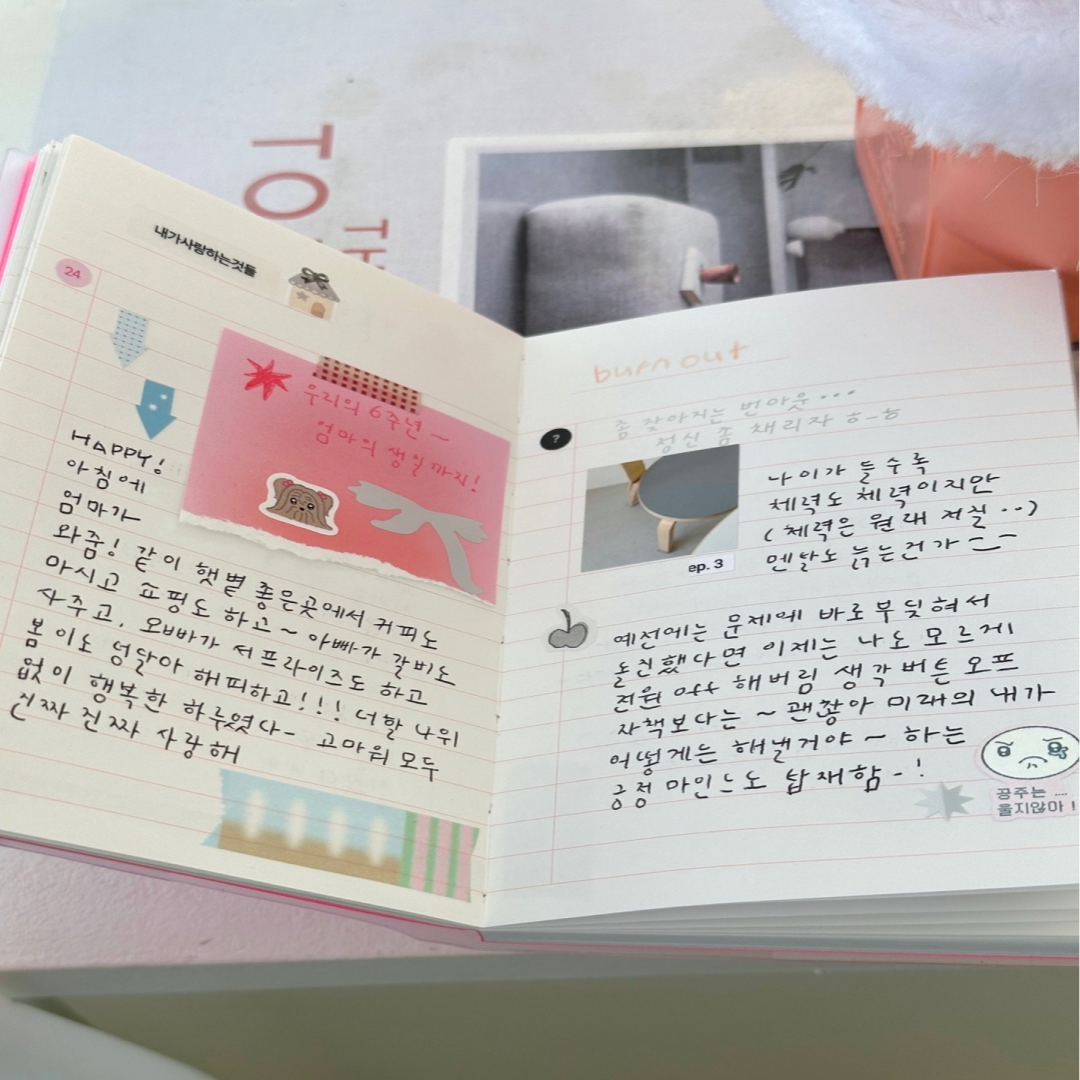 TO
TH
내가사랑하는것들
24
우리의 6주년 ~
엄마의 생일까지!
HAPPY!
아침에
엄마가
와줌! 같이 햇볕 좋은곳에서 커피도
마시고 쇼핑도 하고 ~ 아빠가 갈비도
사주고, 오빠가 서프라이즈도 하고
봄이도 덩달아 해피하고!!! 더할 나위
없이 행복한 하루였다- 고마워 모두
진짜 진짜 사랑해
burn out
?
좀 잦아지는 번아웃...
정신 좀 채리자 ㅎ-ㅎ
ep. 3
나이가 들수록
체력도 체력이지만
(체력은 원래 저질 ..)
멘탈도 늙는건가
예전에는 문제에 바로부딪혀서
돌진했다면 이제는 나도 모르게
전원 off 해버림 생각버튼 오프
자책보다는 ~ 괜찮아 미래의 내가
어떻게든 해낼거야 ~ 하는
긍정 마인드도 탑재함 - !
공주는 ....
울지않아 !